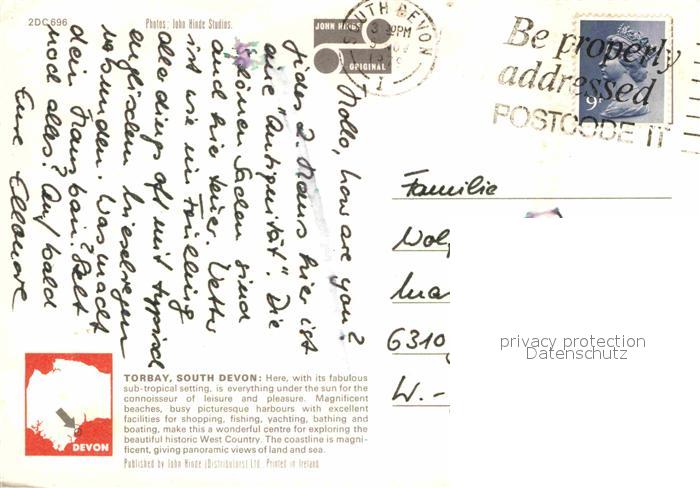 2DC696
Photos: John Hinde Studios.
JOHN HINDE
ORIGINAL
SOUTH DEVON
Be properly
addressed
POSTCODE IT
9P
Hallo, how are you?
Jedes 2. Haus hier ist
eine "Antiquität". Die
schönen Sachen sind
auch hier teuer. Wetter
ist wie im Frühling
allerdings oft mit typisch
englischem Nieselregen
verbunden. Was macht
dein Hausbau? Geht
noch alles? Auf bald
Eure Ellonore
Familie
Wolf
Ma
6310
W.-
privacy protection
Datenschutz
TORBAY, SOUTH DEVON: Here, with its fabulous
sub-tropical setting, is everything under the sun for the
connoisseur of leisure and pleasure. Magnificent
beaches, busy picturesque harbours with excellent
facilities for shopping, fishing, yachting, bathing and
boating, make this a wonderful centre for exploring the
beautiful historic West Country. The coastline is magni-
ficent, giving panoramic views of land and sea.
DEVON
Published by John Hinde (Distributors) Ltd. Printed in Ireland